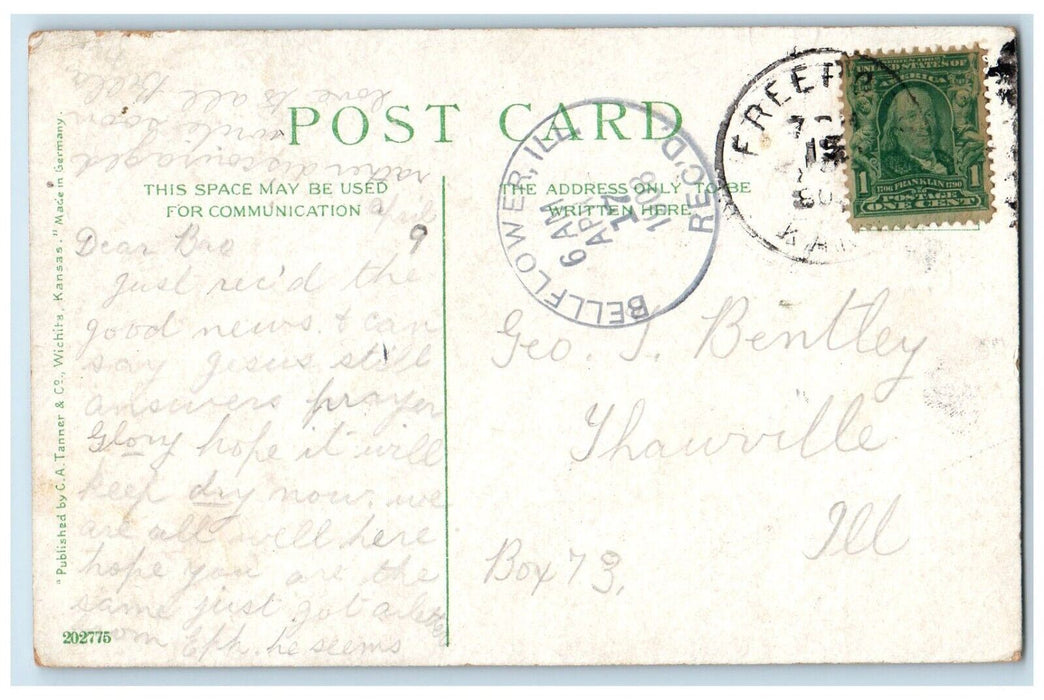 POST CARD
THIS SPACE MAY BE USED
FOR COMMUNICATION
THE ADDRESS ONLY TO BE
WRITTEN HERE.
"Published by C. A. Tanner & Co., Wichita, Kansas." Made in Germany.
202775
BELLFLOWER, ILL. REC'D
6 AM
APR
17
1908
FREEP
15
KAN
UNITED STATES OF
AMERICA
1 1
1706 FRANKLIN 1790
POSTAGE
ONE CENT
April
9
Dear Bro
Just rec'd the
good news. & can
say Jesus still
answers prayer
Glory hope it will
keep dry now. we
are all well here
hope you are the
same just got a letter
from Eph. he seems
rather discouraged
write soon
love to all
Geo. T. Bentley
Thawville
Ill
Box 73.